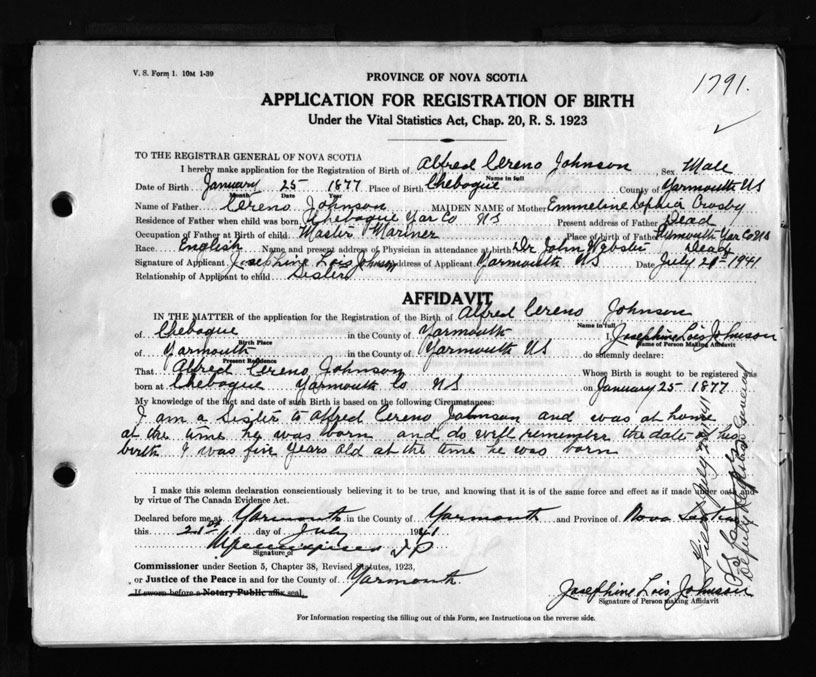 V. S. Form 1. 10M 1-39
1791.
PROVINCE OF NOVA SCOTIA
APPLICATION FOR REGISTRATION OF BIRTH
Under the Vital Statistics Act, Chap. 20, R. S. 1923
TO THE REGISTRAR GENERAL OF NOVA SCOTIA
I hereby make application for the Registration of Birth of Alfred Cereno Johnson Sex Male
Name in full
Date of Birth January 25 1877 Place of Birth Chebogue County of Yarmouth NS
Month Date Year
Name of Father Cereno Johnson MAIDEN NAME of Mother Emmeline Sophia Crosby
Residence of Father when child was born Chebogue Yar Co NS Present address of Father Dead
Occupation of Father at Birth of child Master Mariner Place of birth of Father Yarmouth Yar Co NS
Race English Name and present address of Physician in attendance at birth Dr John Webster Dead
Signature of Applicant Josephine Lois Johnson address of Applicant Yarmouth NS Date July 21st 1941
Relationship of Applicant to child Sister
AFFIDAVIT
IN THE MATTER of the application for the Registration of the Birth of Alfred Cereno Johnson
Name in full
of Chebogue in the County of Yarmouth I, Josephine Lois Johnson
Birth Place Name of Person Making Affidavit
of Yarmouth in the County of Yarmouth NS do solemnly declare:
Present Residence
That Alfred Cereno Johnson Whose Birth is sought to be registered was
born at Chebogue Yarmouth Co NS on January 25 1877
My knowledge of the fact and date of such Birth is based on the following Circumstances:
I am a Sister to Alfred Cereno Johnson and was at home
at the time he was born and do well remember the date of his
birth I was five years old at the time he was born
I make this solemn declaration conscientiously believing it to be true, and knowing that it is of the same force and effect as if made under oath and
by virtue of The Canada Evidence Act.
Declared before me at Yarmouth in the County of Yarmouth and Province of Nova Scotia
this 21st day of July 1941
J P
Signature of
Commissioner under Section 5, Chapter 38, Revised Statutes, 1923,
or Justice of the Peace in and for the County of Yarmouth
If sworn before a Notary Public affix seal.
Josephine Lois Johnson
Signature of Person making Affidavit
For Information respecting the filling out of this Form, see Instructions on the reverse side.
Filed July 1941
Deputy Registrar General